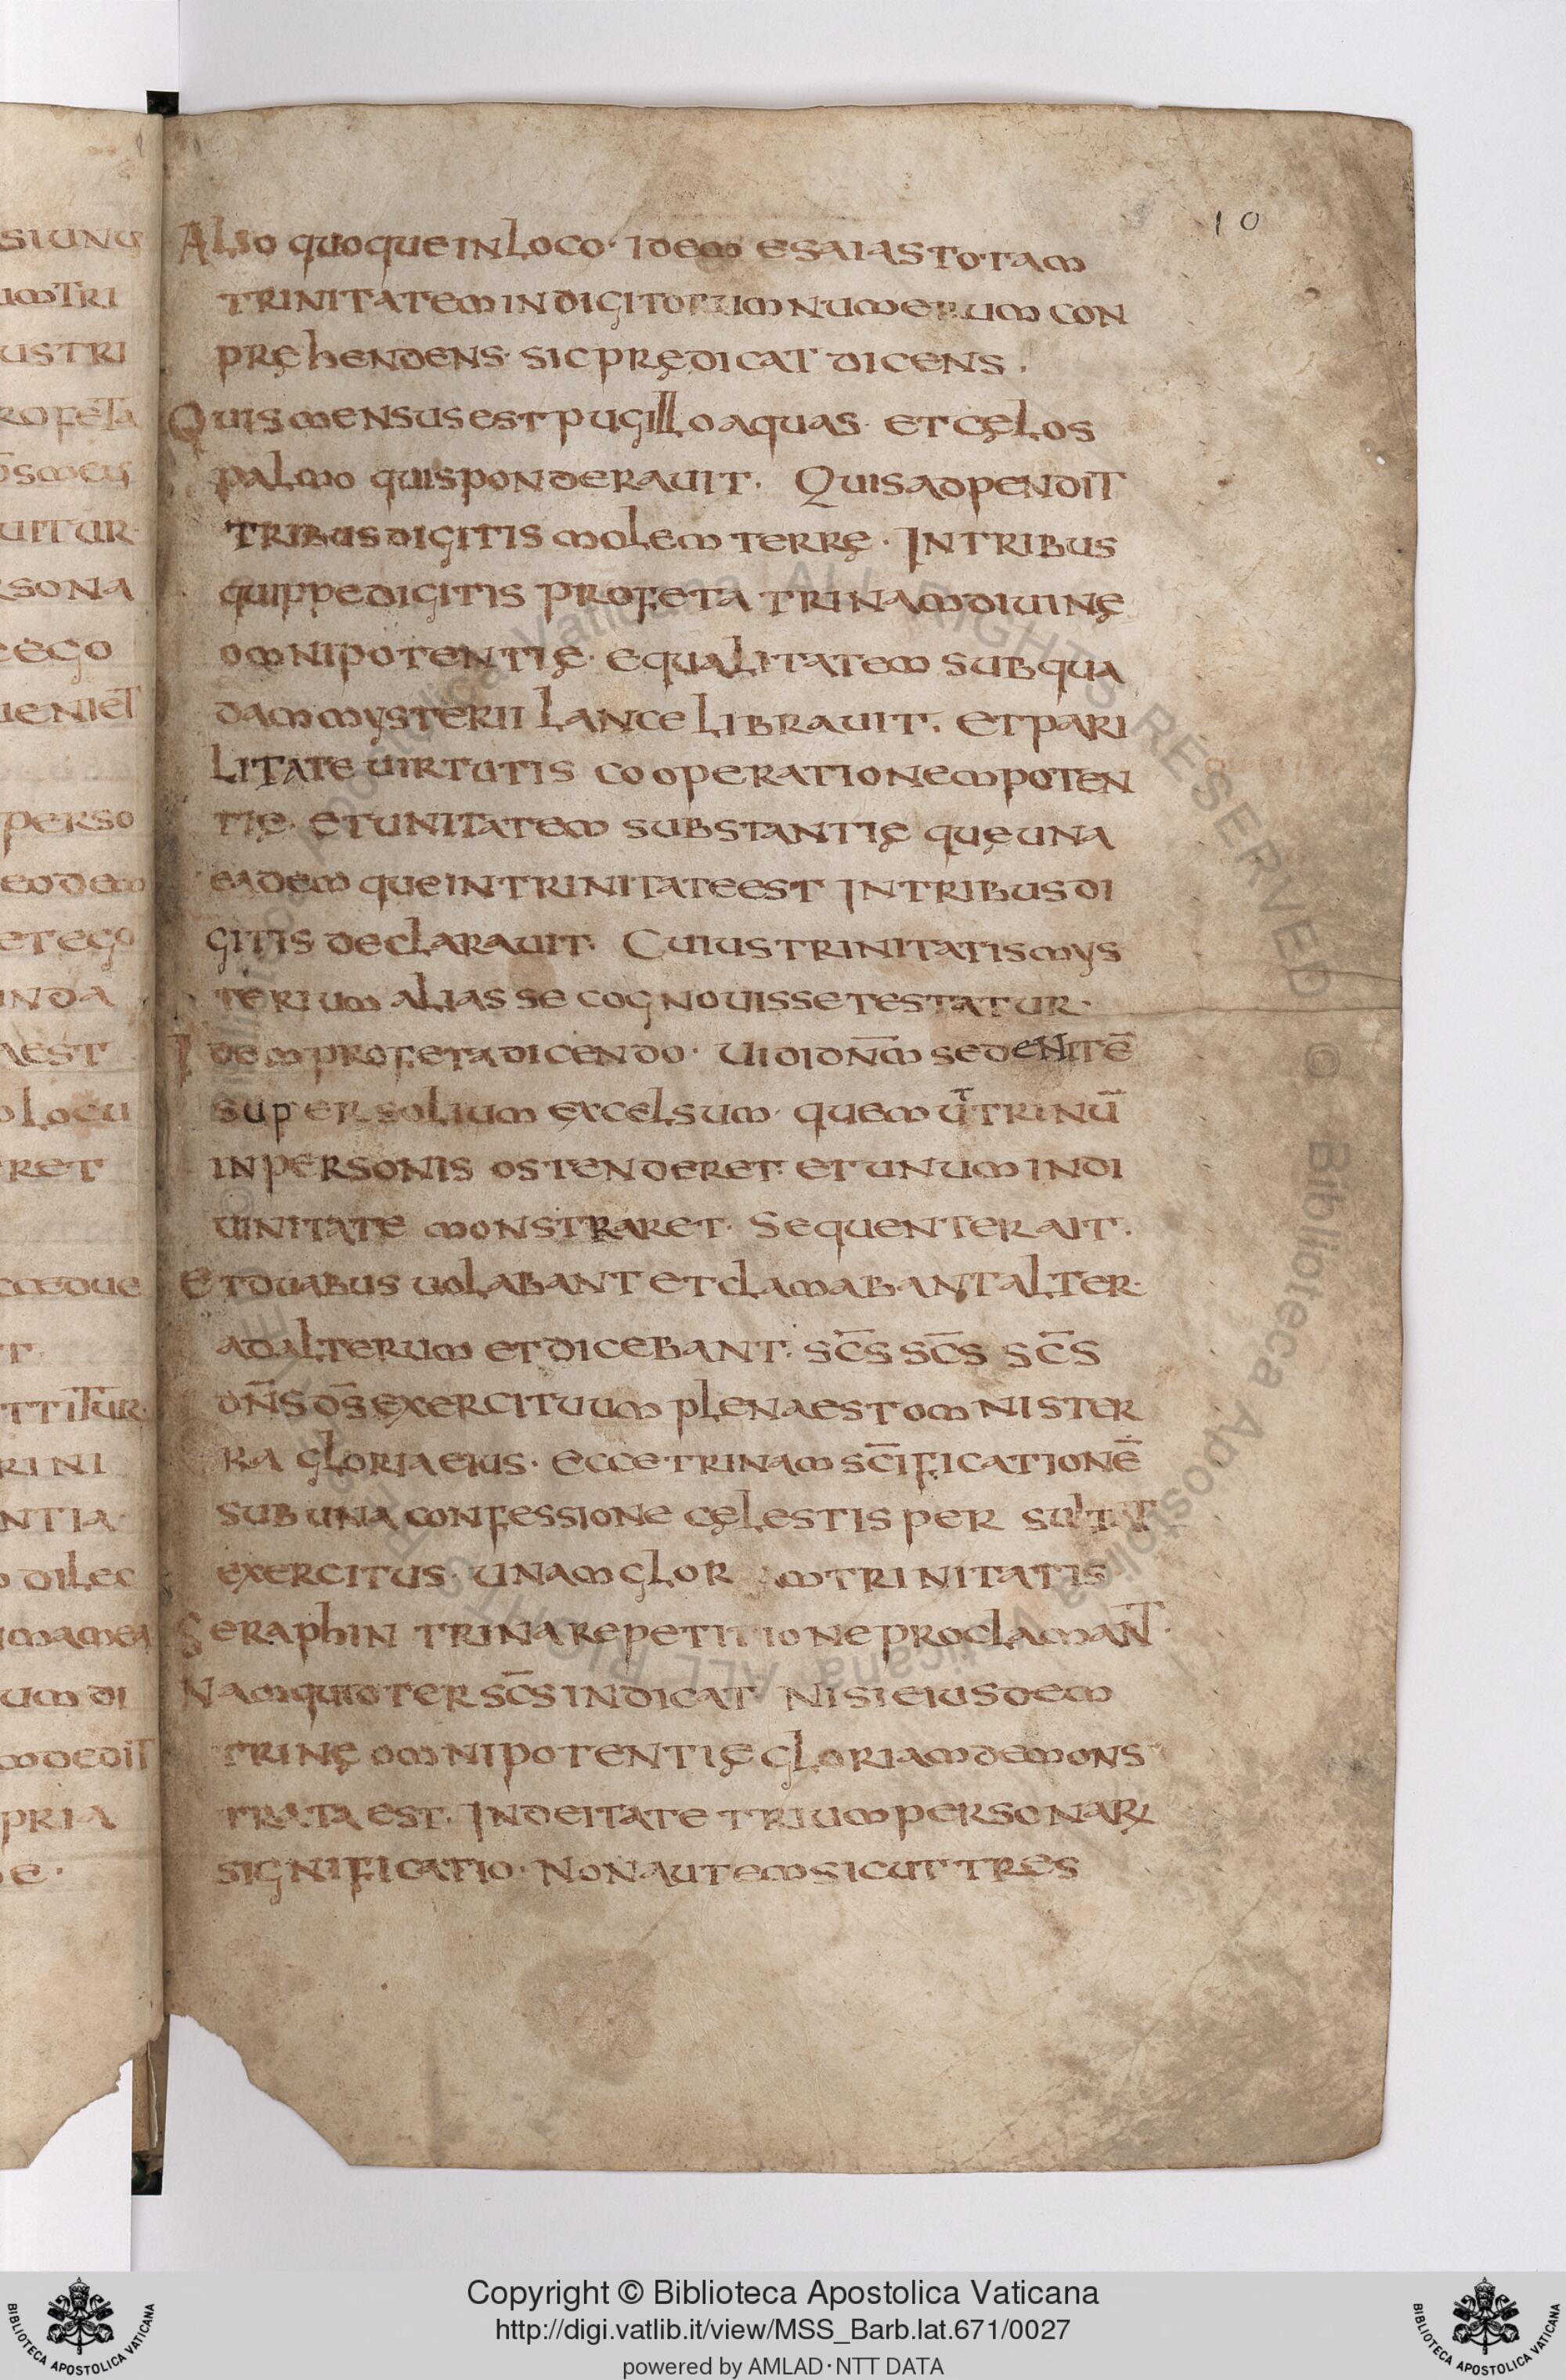 10
Alio quoque in loco· idem esaias totam
trinitatem in digitorum numerum con
pręhendens· sic prędicat dicens·
Quis mensus est pugillo aquas· et cęlos
palmo quis ponderauit· Quis adpendit
tribus digitis molem terrę· In tribus
quippe digitis profeta trinam diuinę
omnipotentię· equalitatem sub qua
dam mysterii lance librauit· et pari
litate uirtutis cooperationem poten
tię· et unitatem substantię quę una
eademque in trinitate est In tribus di
gitis declarauit· Cuius trinitatis mys
terium alias se cognouisse testatur·
Idem profeta dicendo· Uidi dn̅m sedentē
super solium excelsum· quem ut̅ trinū
in personis ostenderet· et unum in di
uinitate monstraret· Sequenter ait·
Et duabus uolabant et clamabant alter·
ad alterum et dicebant· sc̅s sc̅s sc̅s
dn̅s ds̅ exercituum plena est omnis ter
ra gloria eius· Ecce trinam sc̅ificationē
sub una confessione cęlestis persultat
exercitus· unam glor m trinitatis
Seraphin trina repetitione proclamant·
Nam quid ter sc̅s indicat nisi eiusdem
trinę omnipotentię gloriam demons
trata est· In deitate trium personarꝝ
significatio· Non autem sicut tres
Copyright © Biblioteca Apostolica Vaticana
http://digi.vatlib.it/view/MSS_Barb.lat.671/0027
powered by AMLAD·NTT DATA
BIBLIOTECA APOSTOLICA VATICANA
BIBLIOTECA APOSTOLICA VATICANA